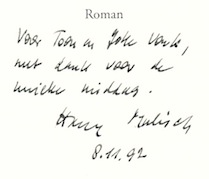 Roman
Voor Toon en Joke Vonk,
met dank voor de
unieke middag.
Harry Mulisch
8.11.92